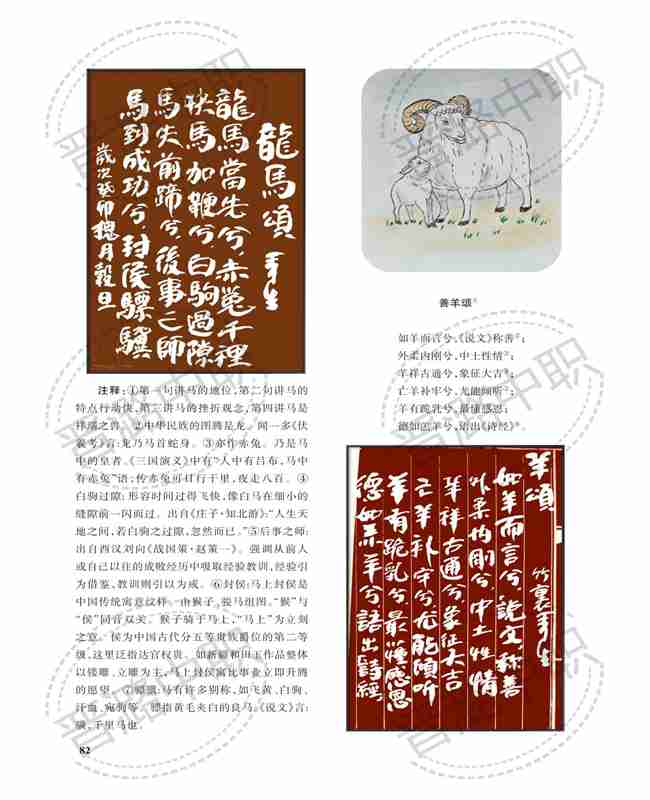 龍馬頌 羊生
龍馬當先兮，赤兔千裡
快馬加鞭兮，白駒過隙
馬失前蹄兮，後事之師
馬到成功兮，封侯驃驥
歲次癸卯穗月穀旦
注释：①第一句讲马的地位，第二句讲马的
特点行动快，第三讲马的挫折观念，第四讲马是
祥瑞之兽。②中华民族的图腾是龙。闻一多《伏
羲考》言：龙乃马首蛇身。③赤作赤兔。乃是马
中的皇者。《三国演义》中有“人中有吕布，马中
有赤兔”语；传赤兔可日行千里，夜走八百。④
白驹过隙：形容时间过得飞快，像白马在细小的
缝隙前一闪而过。出自《庄子·知北游》：“人生天
地之间，若白驹之过隙，忽然而已。”⑤后事之师：
出自西汉刘向《战国策·赵策一》。强调从前人
或自己以往的成败经历中吸取经验教训，经验引
为借鉴，教训则引以为戒。⑥封侯：马上封侯是
中国传统寓意纹样。由猴子、骏马组图。“猴”与
“侯”同音双关。猴子骑于马上，“马上”为立刻
之意。侯为中国古代分五等贵族爵位的第二等
级，这里泛指达官权贵。如新疆和田玉作品整体
以镂雕、立雕为主，马上封侯寓比事业立即升腾
的愿望。⑦骠骥：马有许多别称，如飞黄、白驹、
汗血、宛驹等。骠指黄毛夹白的良马。《说文》言：
骥，千里马也。
82
善羊颂①
如羊而言兮，《说文》称善②；
外柔内刚兮，中土性情③；
羊祥古通兮，象征大吉④；
亡羊补牢兮，尤能倾听⑤；
羊有跪乳兮，最懂感恩；
德如羔羊兮，语出《诗经》⑥。
羊頌
竹裏羊生
如羊而言兮，說文称善
外柔内剛兮，中土性情
羊祥古通兮，象征大吉
亡羊补牢兮，尤能傾听
羊有跪乳兮，最懂感恩
德如羔羊兮，語出詩經
晋略中职